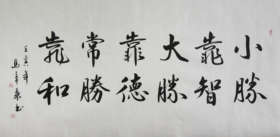 小勝
靠智
大勝
靠德
常勝
靠和
壬寅年